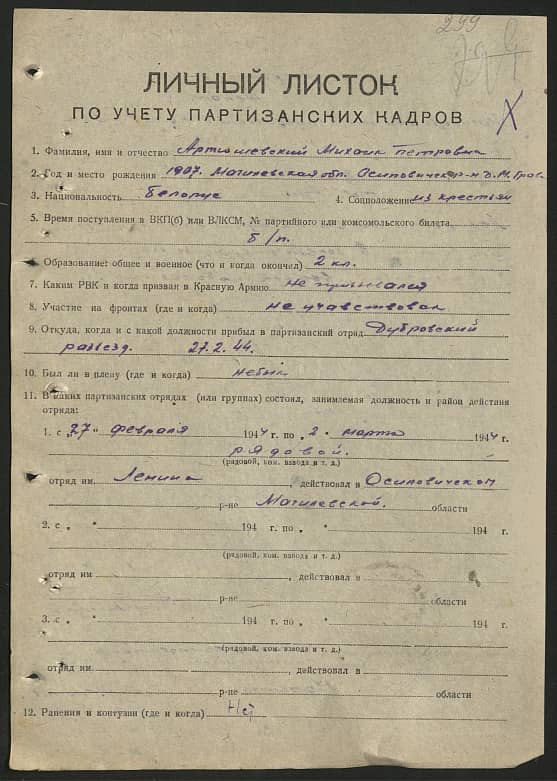 299
ЛИЧНЫЙ ЛИСТОК
ПО УЧЕТУ ПАРТИЗАНСКИХ КАДРОВ
1. Фамилия, имя и отчество Артюшевский Михаил Петрович
2. Год и место рождения 1907. Могилевская обл. Осиповичск р-н д. М. Грав.
3. Национальность Белорус 4. Соцположение из крестьян
5. Время поступления в ВКП(б) или ВЛКСМ, № партийного или комсомольского билета
б/п.
6. Образование: общее и военное (что и когда окончил) 2 кл.
7. Каким РВК и когда призван в Красную Армию не призывался
8. Участие на фронтах (где и когда) не учавствовал
9. Откуда, когда и с какой должности прибыл в партизанский отряд Дубровский
разъезд. 27.2.44.
10. Был ли в плену (где и когда) небыл
11. В каких партизанских отрядах (или группах) состоял, занимаемая должность и район действия
отряда:
1. с „27" февраля 1944 г. по „2" марта 1944 г.
рядовой.
(рядовой, ком. взвода и т. д.)
отряд им. Ленина, действовал в Осиповичском
р-не Могилевской. области
2. с „ " 194 г. по „ " 194 г.
(рядовой, ком. взвода и т. д.)
отряд им , действовал в
р-не области
3. с „ " 194 г. по „ " 194 г.
(рядовой, ком. взвода и т. д.)
отряд им. , действовал в
р-не области
12. Ранения и контузии (где и когда) Нет